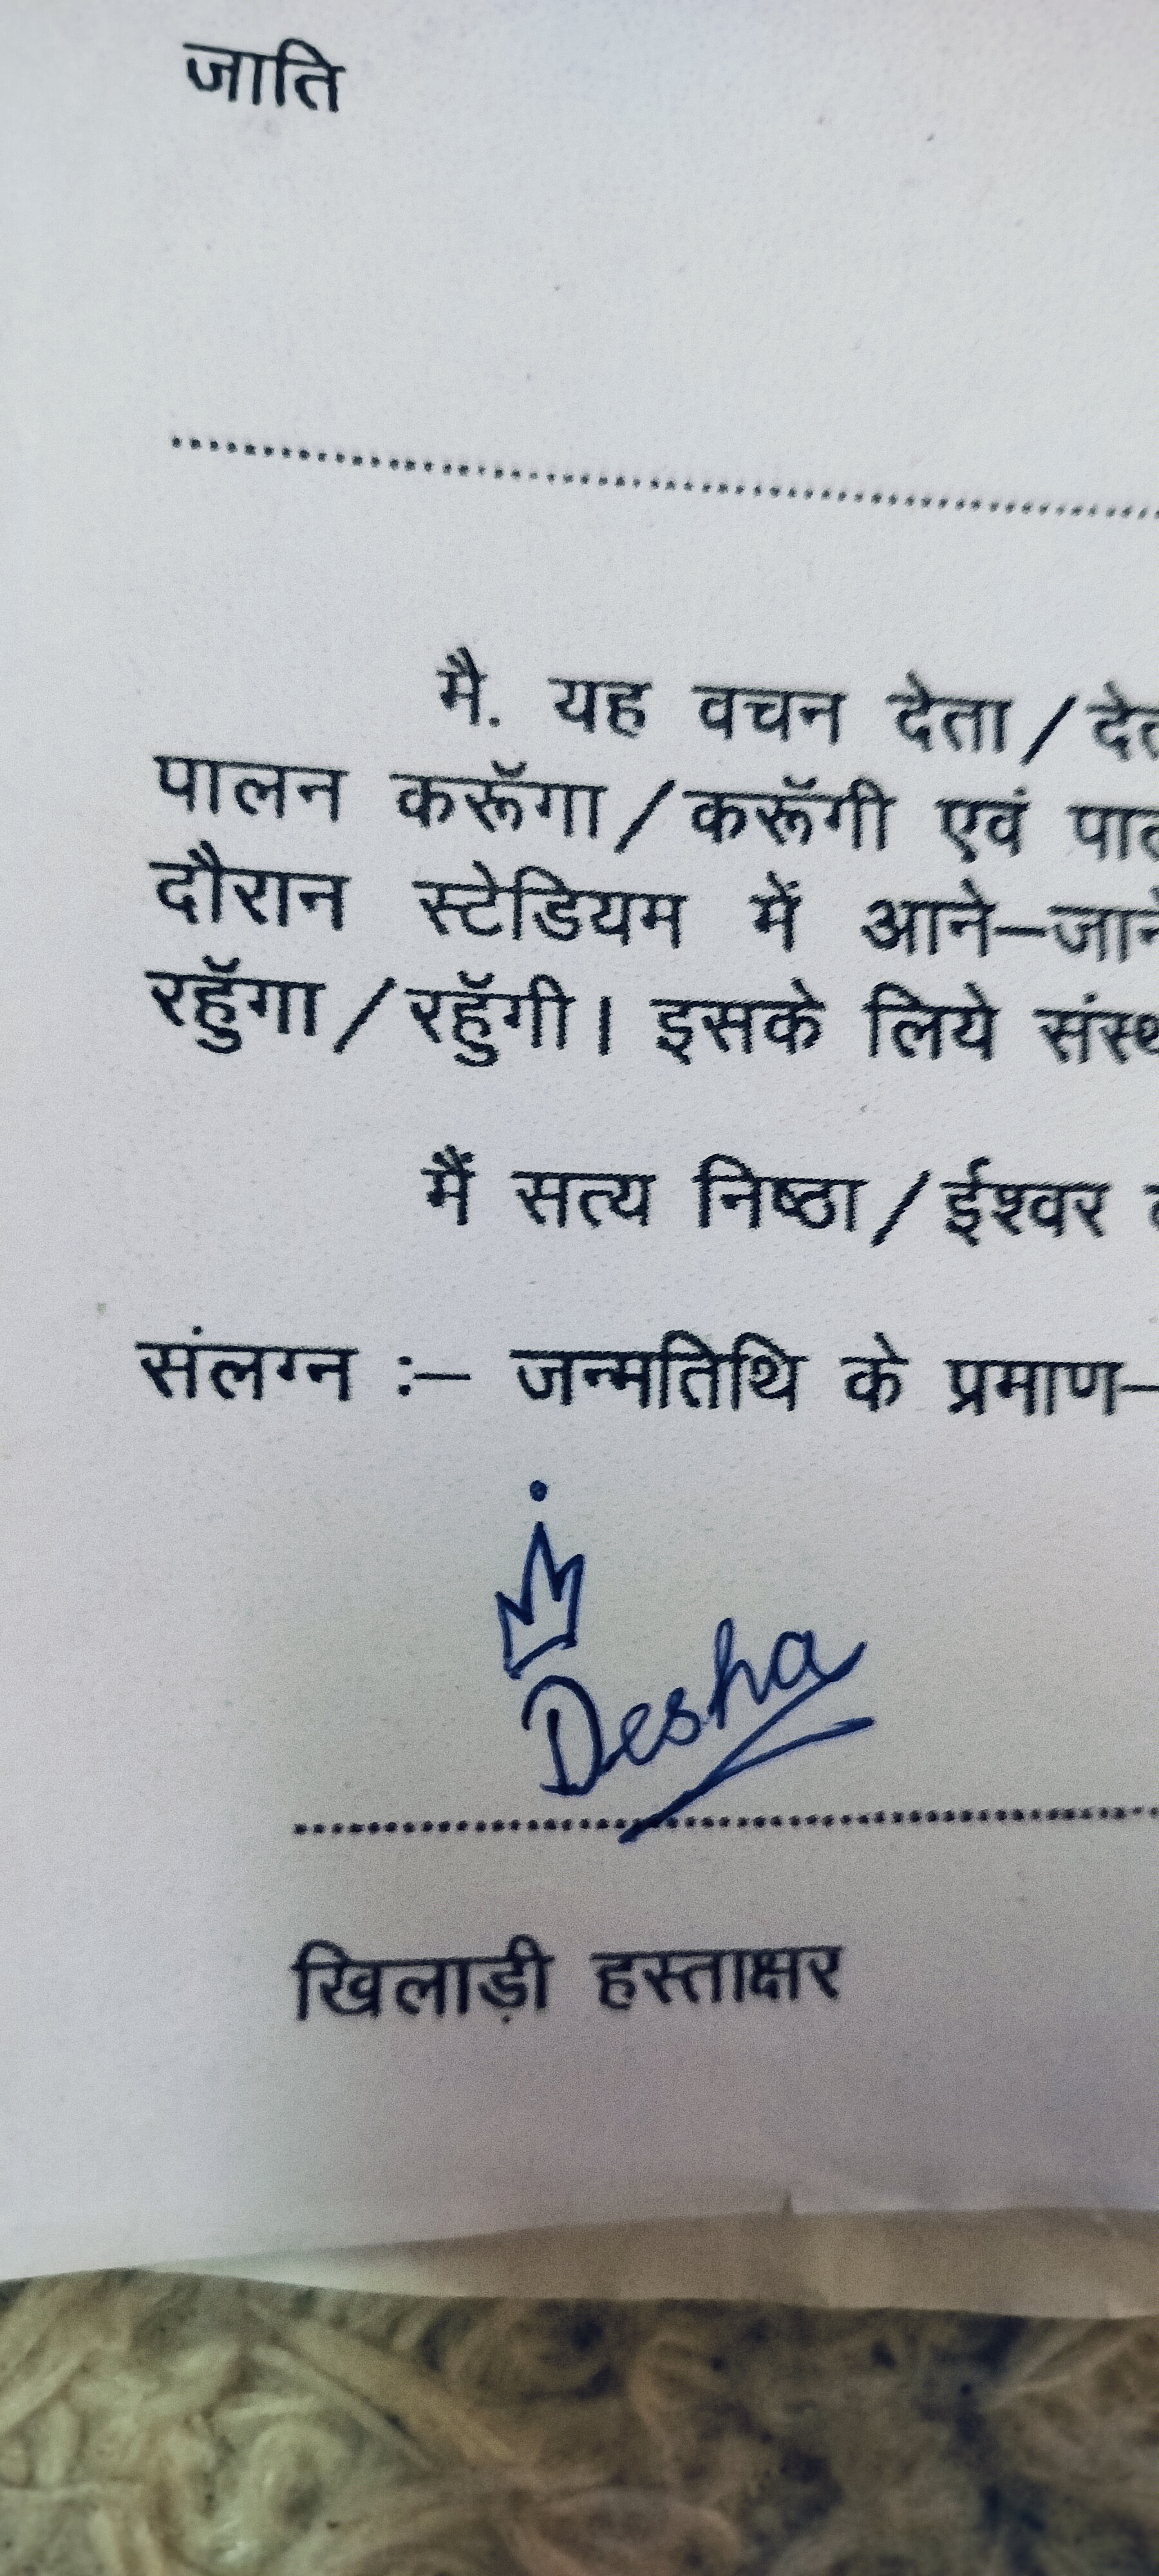 जाति
मै. यह वचन देता/
पालन करूॅगा/करूॅगी एवं
दौरान स्टेडियम में आने–जाने
रहूॅगा/रहूॅगी। इसके लिये
मैं सत्य निष्ठा/ईश्वर
संलग्न :– जन्मतिथि के प्रमाण–
Desha
खिलाड़ी हस्ताक्षर